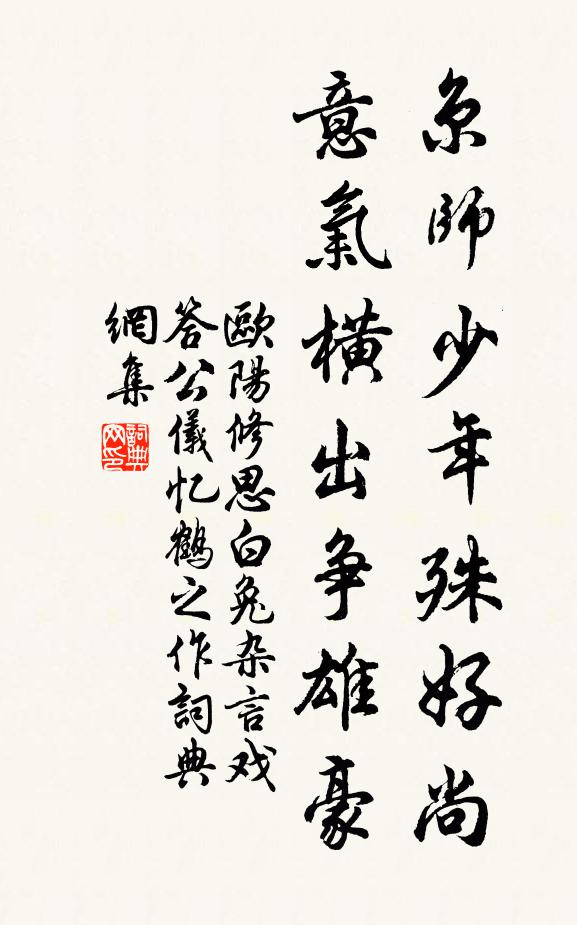 京師少年殊好尚
意氣橫出争雄豪
歐陽修思白兔杂言戏
答公儀忆鶴之作詞典
網集
詞典
网印